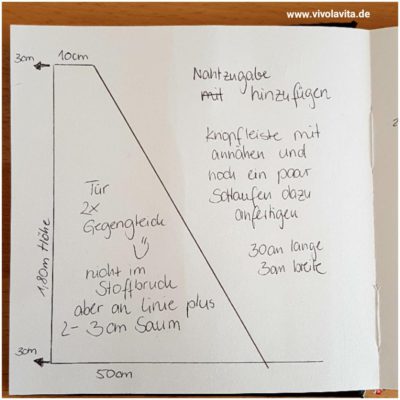 www.vivolavita.de
3cm
10cm
Nahtzugabe
mit hinzufügen
Knopfleiste mit
annähen und
noch ein paar
Schlaufen dazu
anfertigen
30cm lange
3cm breite
Tür
2x
Gegengleich
nicht im
Stoffbruch
aber an Linie plus
2-3cm Saum
1,80m Höhe
3cm
50cm